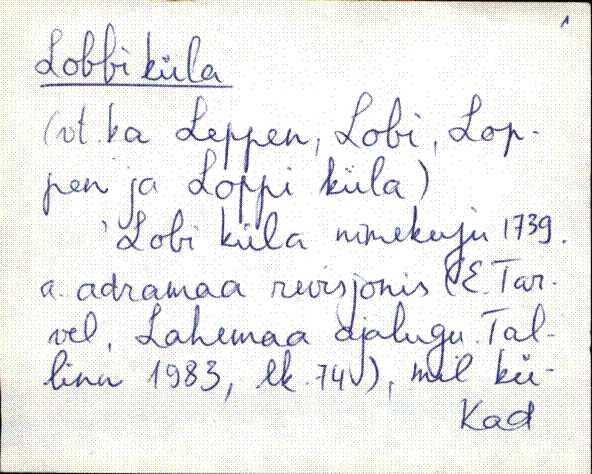 1
Lobbi küla
(vt. ka Leppen, Lobi, Lop-
pen ja Loppi küla)
Lobi küla nimekuju 1739.
a. adramaa revisjonis (E. Tar-
vel, Lahemaa ajalugu. Tal-
linn 1983, lk. 74), mil kü-
Kad